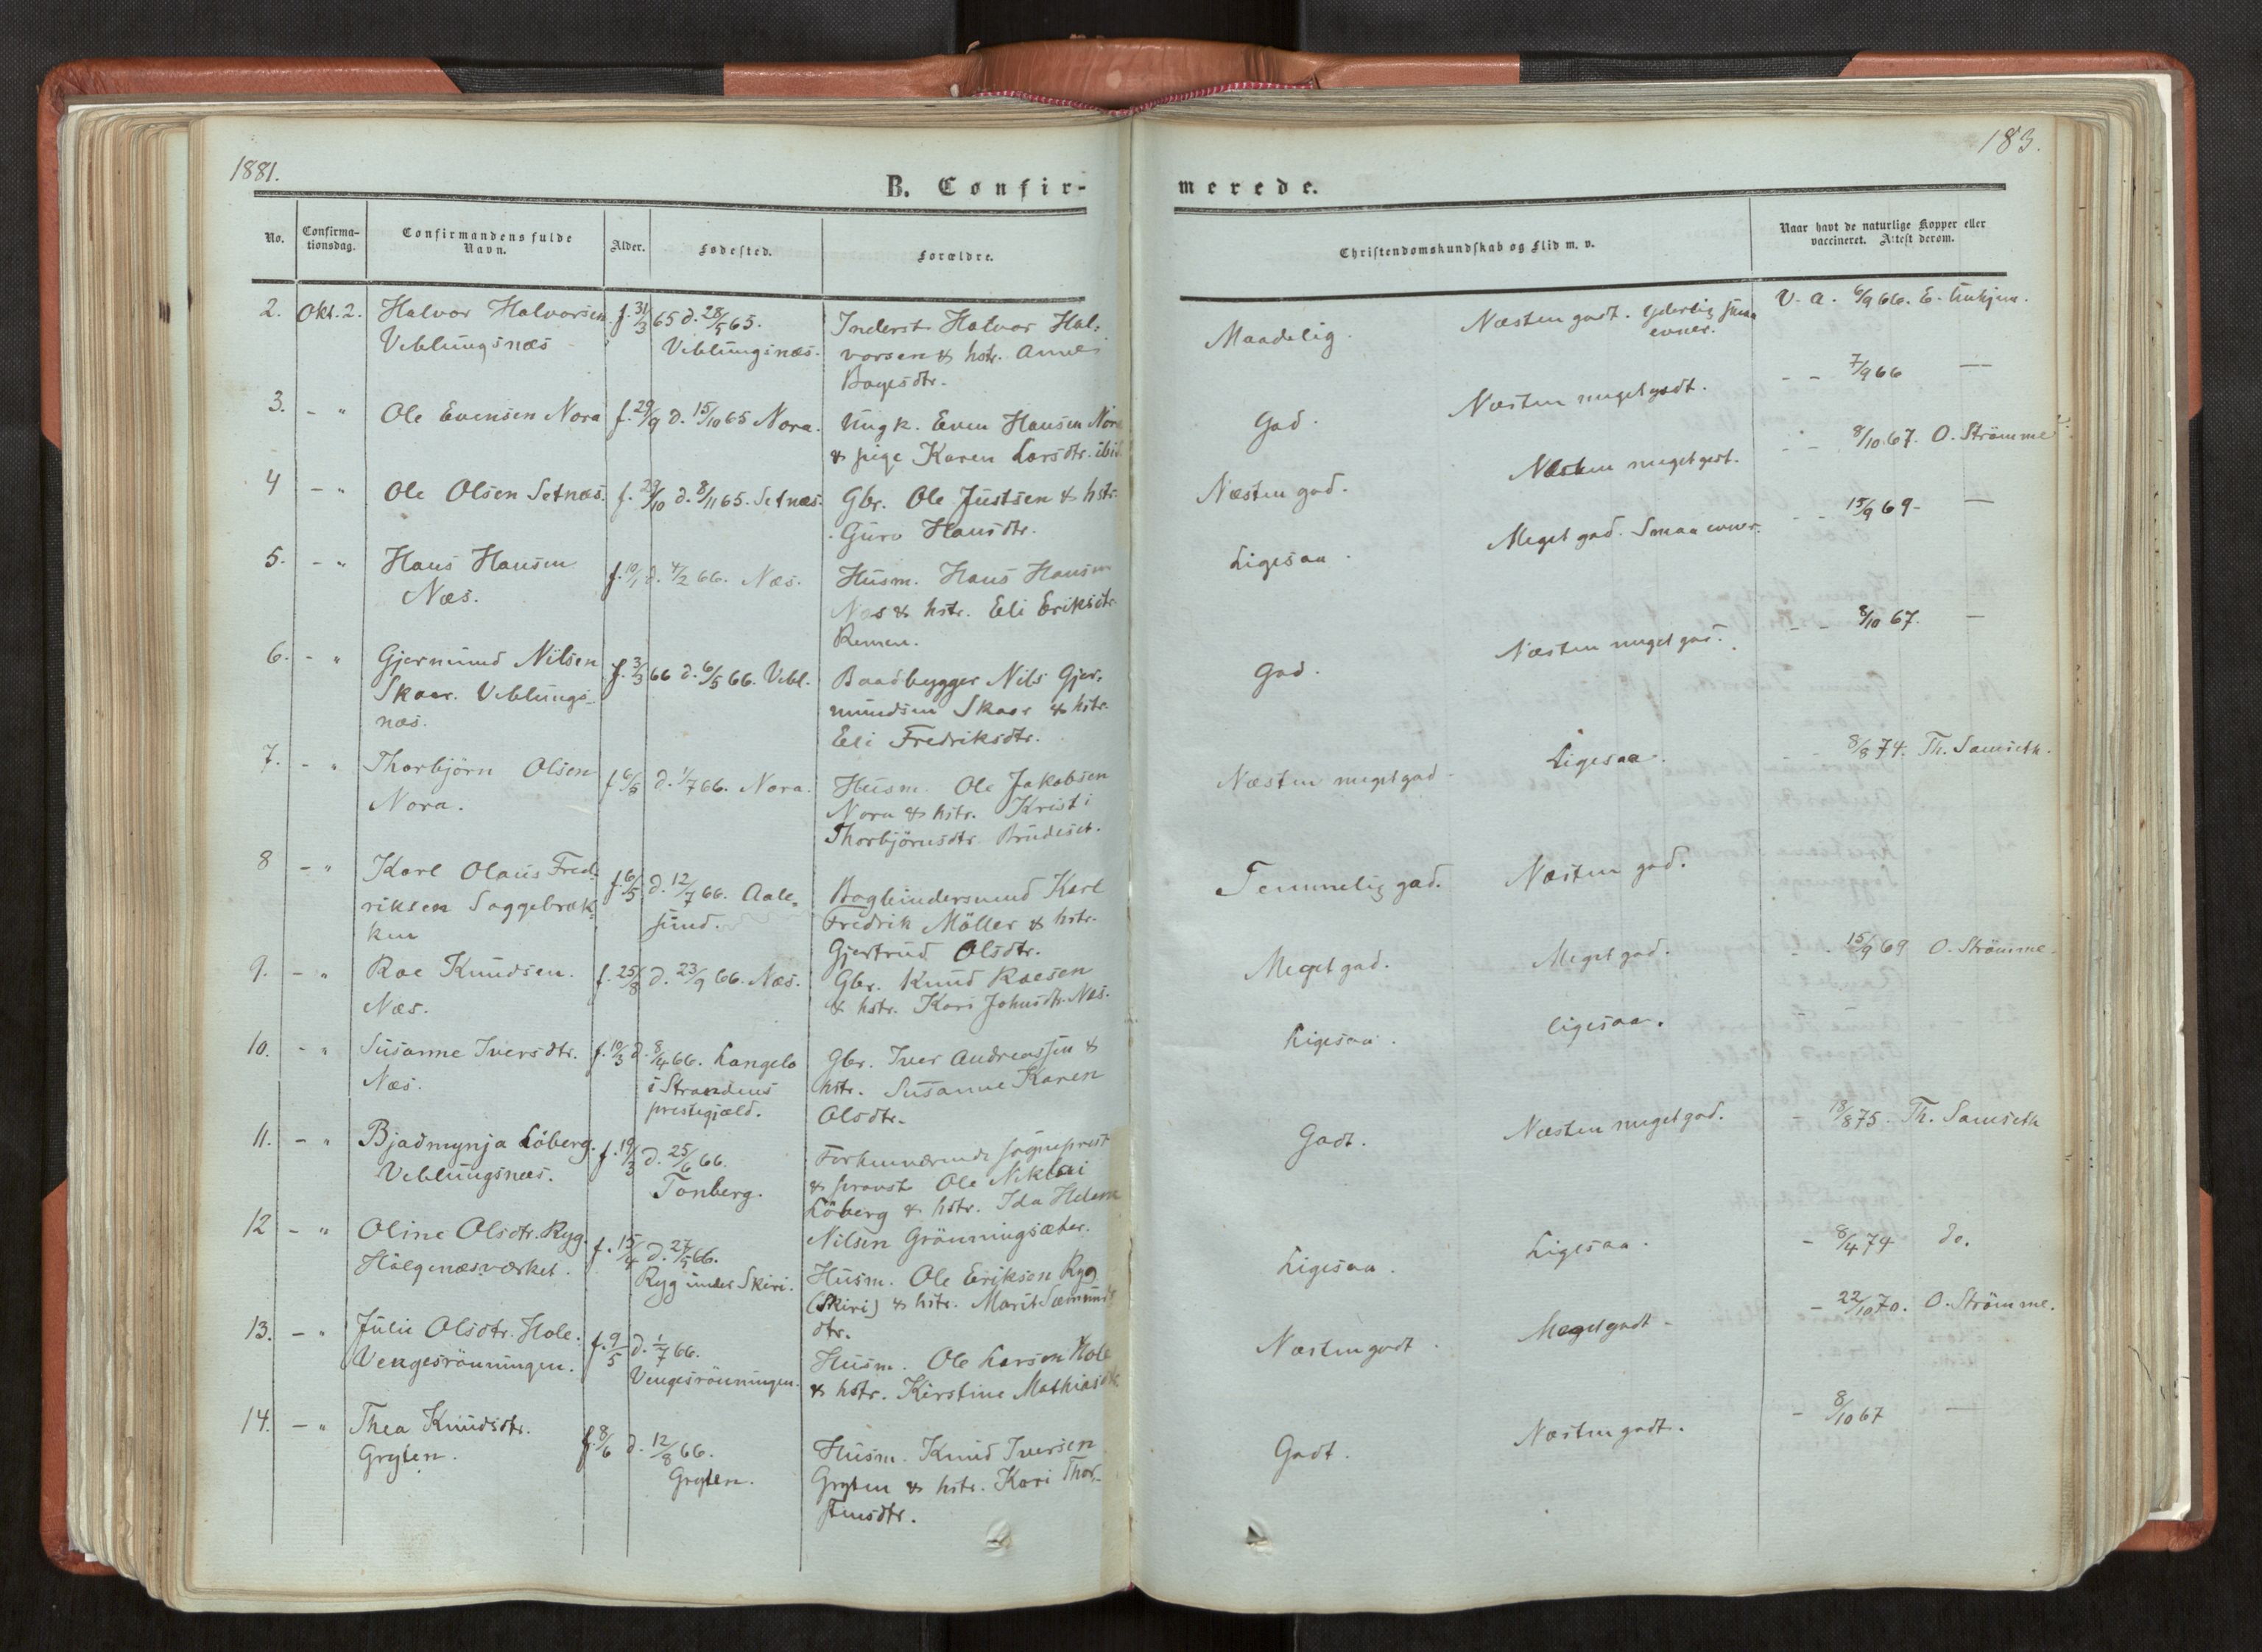 1881.
183.
B. Confir-
merede.
No.
Confirma-
tionsdag.
Confirmandens fulde
Navn.
Alder.
Fødested.
Forældre.
Christendomskundskab og Flid m. v.
Naar havt de naturlige Kopper eller
vaccineret. Attest derom.
2. Okt. 2. Halvor Halvorsen f. 31/3 65 d. 28/5 65. Inderst Halvor Hal-
Veblungsnæs Veblungsnæs. vorsen & hstr. Anne
Bagesdtr.
Maadelig. Næsten godt. Yderlig smaa
evner.
V. a. 6/9 66. E.
3. - " Ole Evensen Nora f. 29/9 d. 15/10 65 Nora. Ungk. Even Hansen Nora
& pige Karen Larsdtr. ibid.
God. Næsten meget godt. - - 7/9 66 —
4 - " Ole Olsen Setnæs. f. 23/10 d. 8/11 65. Setnæs. Gbr. Ole Justsen & hstr.
Guro Hansdtr.
Næsten god. Næsten meget godt. - - 8/10 67. O. Strömme
5. - " Hans Hansen f. 10/1 d. 4/2 66. Næs. Husm. Hans Hansen
Næs. Næs & hstr. Eli Eriksdtr.
Remen.
Ligesaa. Meget god. Smaa evner. - - 15/9 69 - —
6. - " Gjermund Nilsen f. 3/3 66 d. 6/5 66. Vebl. Baadbygger Nils Gjer-
Skaar. Veblungs- mundsen Skaar & hstr.
næs. Eli Fredriksdtr.
God. Næsten meget god. - - 8/10 67. —
7. - " Thorbjörn Olsen f. 6/5 d. 1/7 66. Nora. Husm. Ole Jakobsen
Nora. Nora & hstr. Kristi
Thorbjörnsdtr. Brudeset.
Næsten meget god - Ligesaa. 8/8 74. Th. Samseth.
8 - " Karl Olaus Fred- f. 6/5 d. 12/7 66. Aale- Bogbindersvend Karl
riksen Soggebræk- sund. Fredrik Möller & hstr.
ken Gjertrud Olsdtr.
Temmelig god. Næsten god.
9. - " Roe Knudsen. f. 25/8 d. 23/9 66. Næs. Gbr. Knud Roesen
Næs. & hstr. Kari Johnsdtr. Næs.
Meget god. Meget god. - - 15/9 69 O. Strömme.
10. - " Susanne Iversdtr. f. 10/3 d. 8/4 66. Langelo Gbr. Iver Andreassen &
Næs. i Strandens hstr. Susanne Karen
prestegjæld. Olsdtr.
Ligesaa. Ligesaa.
11. - " Bjadmynja Löberg. f. 19/3 d. 25/6 66. Forhenværende sogneprest
Veblungsnæs. Tonberg. & provst Ole Niklai
Löberg & hstr. Ida Helene
Nilsen Grönningsæter.
Godt. Næsten meget god. - 13/8 75. Th. Samseth
12 - " Oline Olsdtr. Ryg. f. 15/4 d. 27/5 66. Husm. Ole Eriksen Ryg
Holgenæsværket. Ryg under Skiri. (Skiri) & hstr. Marit Sæmunds
dtr.
Ligesaa. Ligesaa. - 8/4 74 do.
13. - " Julie Olsdtr. Hole. f. 9/5 d. 1/7 66. Husm. Ole Larsen Hole
Vengesrönningen. Vengesrönningen. & hstr. Kirstine Mathiasdtr.
Næsten godt. Meget godt - - 22/10 70. O. Strömme.
14. - " Thea Knudsdtr. f. 8/6 d. 12/8 66. Husm. Knud Iversen
Gryten. Gryten. Gryten & hstr. Kari Thor-
stensdtr.
Godt. Næsten godt. - 8/10 67 —